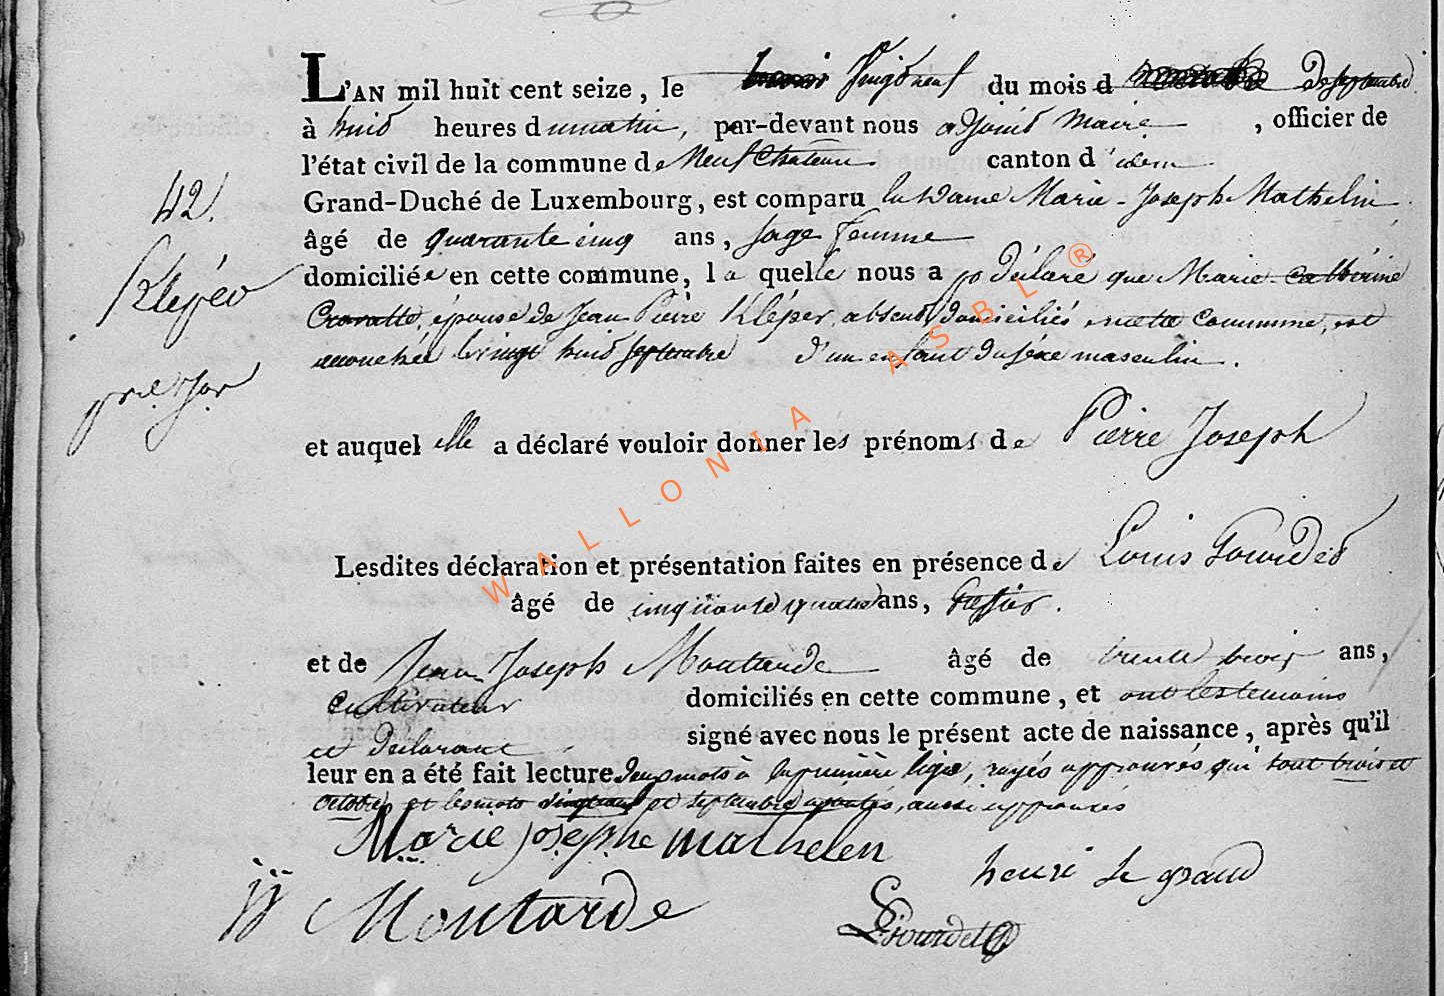 L'AN mil huit cent seize, le trois vingt neuf du mois d de septembre
à huit heures du matin, par-devant nous adjoint maire, officier de
l'état civil de la commune de Neufchateau canton d'idem
Grand-Duché de Luxembourg, est comparu la dame Marie-Joseph Mathelin
42.
âgé de quarante cinq ans, sage femme
Klepér
domiciliée en cette commune, la quelle nous a déclaré que Marie Catherine
Cravatte, épouse de Jean Pierre Kléper, absent, domiciliés en cette commune, est
accouchée le vingt huit septembre d'un enfant du sexe masculin.
prre Jos
et auquel elle a déclaré vouloir donner les prénoms de Pierre Joseph
Lesdites déclaration et présentation faites en présence de Louis Gourdet
âgé de cinquante quatre ans, greffier.
et de Jean Joseph Moutarde âgé de trente trois ans,
cultivateur domiciliés en cette commune, et ont les temoins
et declarant signé avec nous le présent acte de naissance, après qu'il
leur en a été fait lecture, deux mots à la première ligne, rayés approuvés qui sont trois et
octobre, et les mots vingt neuf et septembre ajoutés, aussi approuvés
Marie josephe mathelen
henri Le grand
jj Moutarde
L Gourdet
WALLONIA ASBL ®